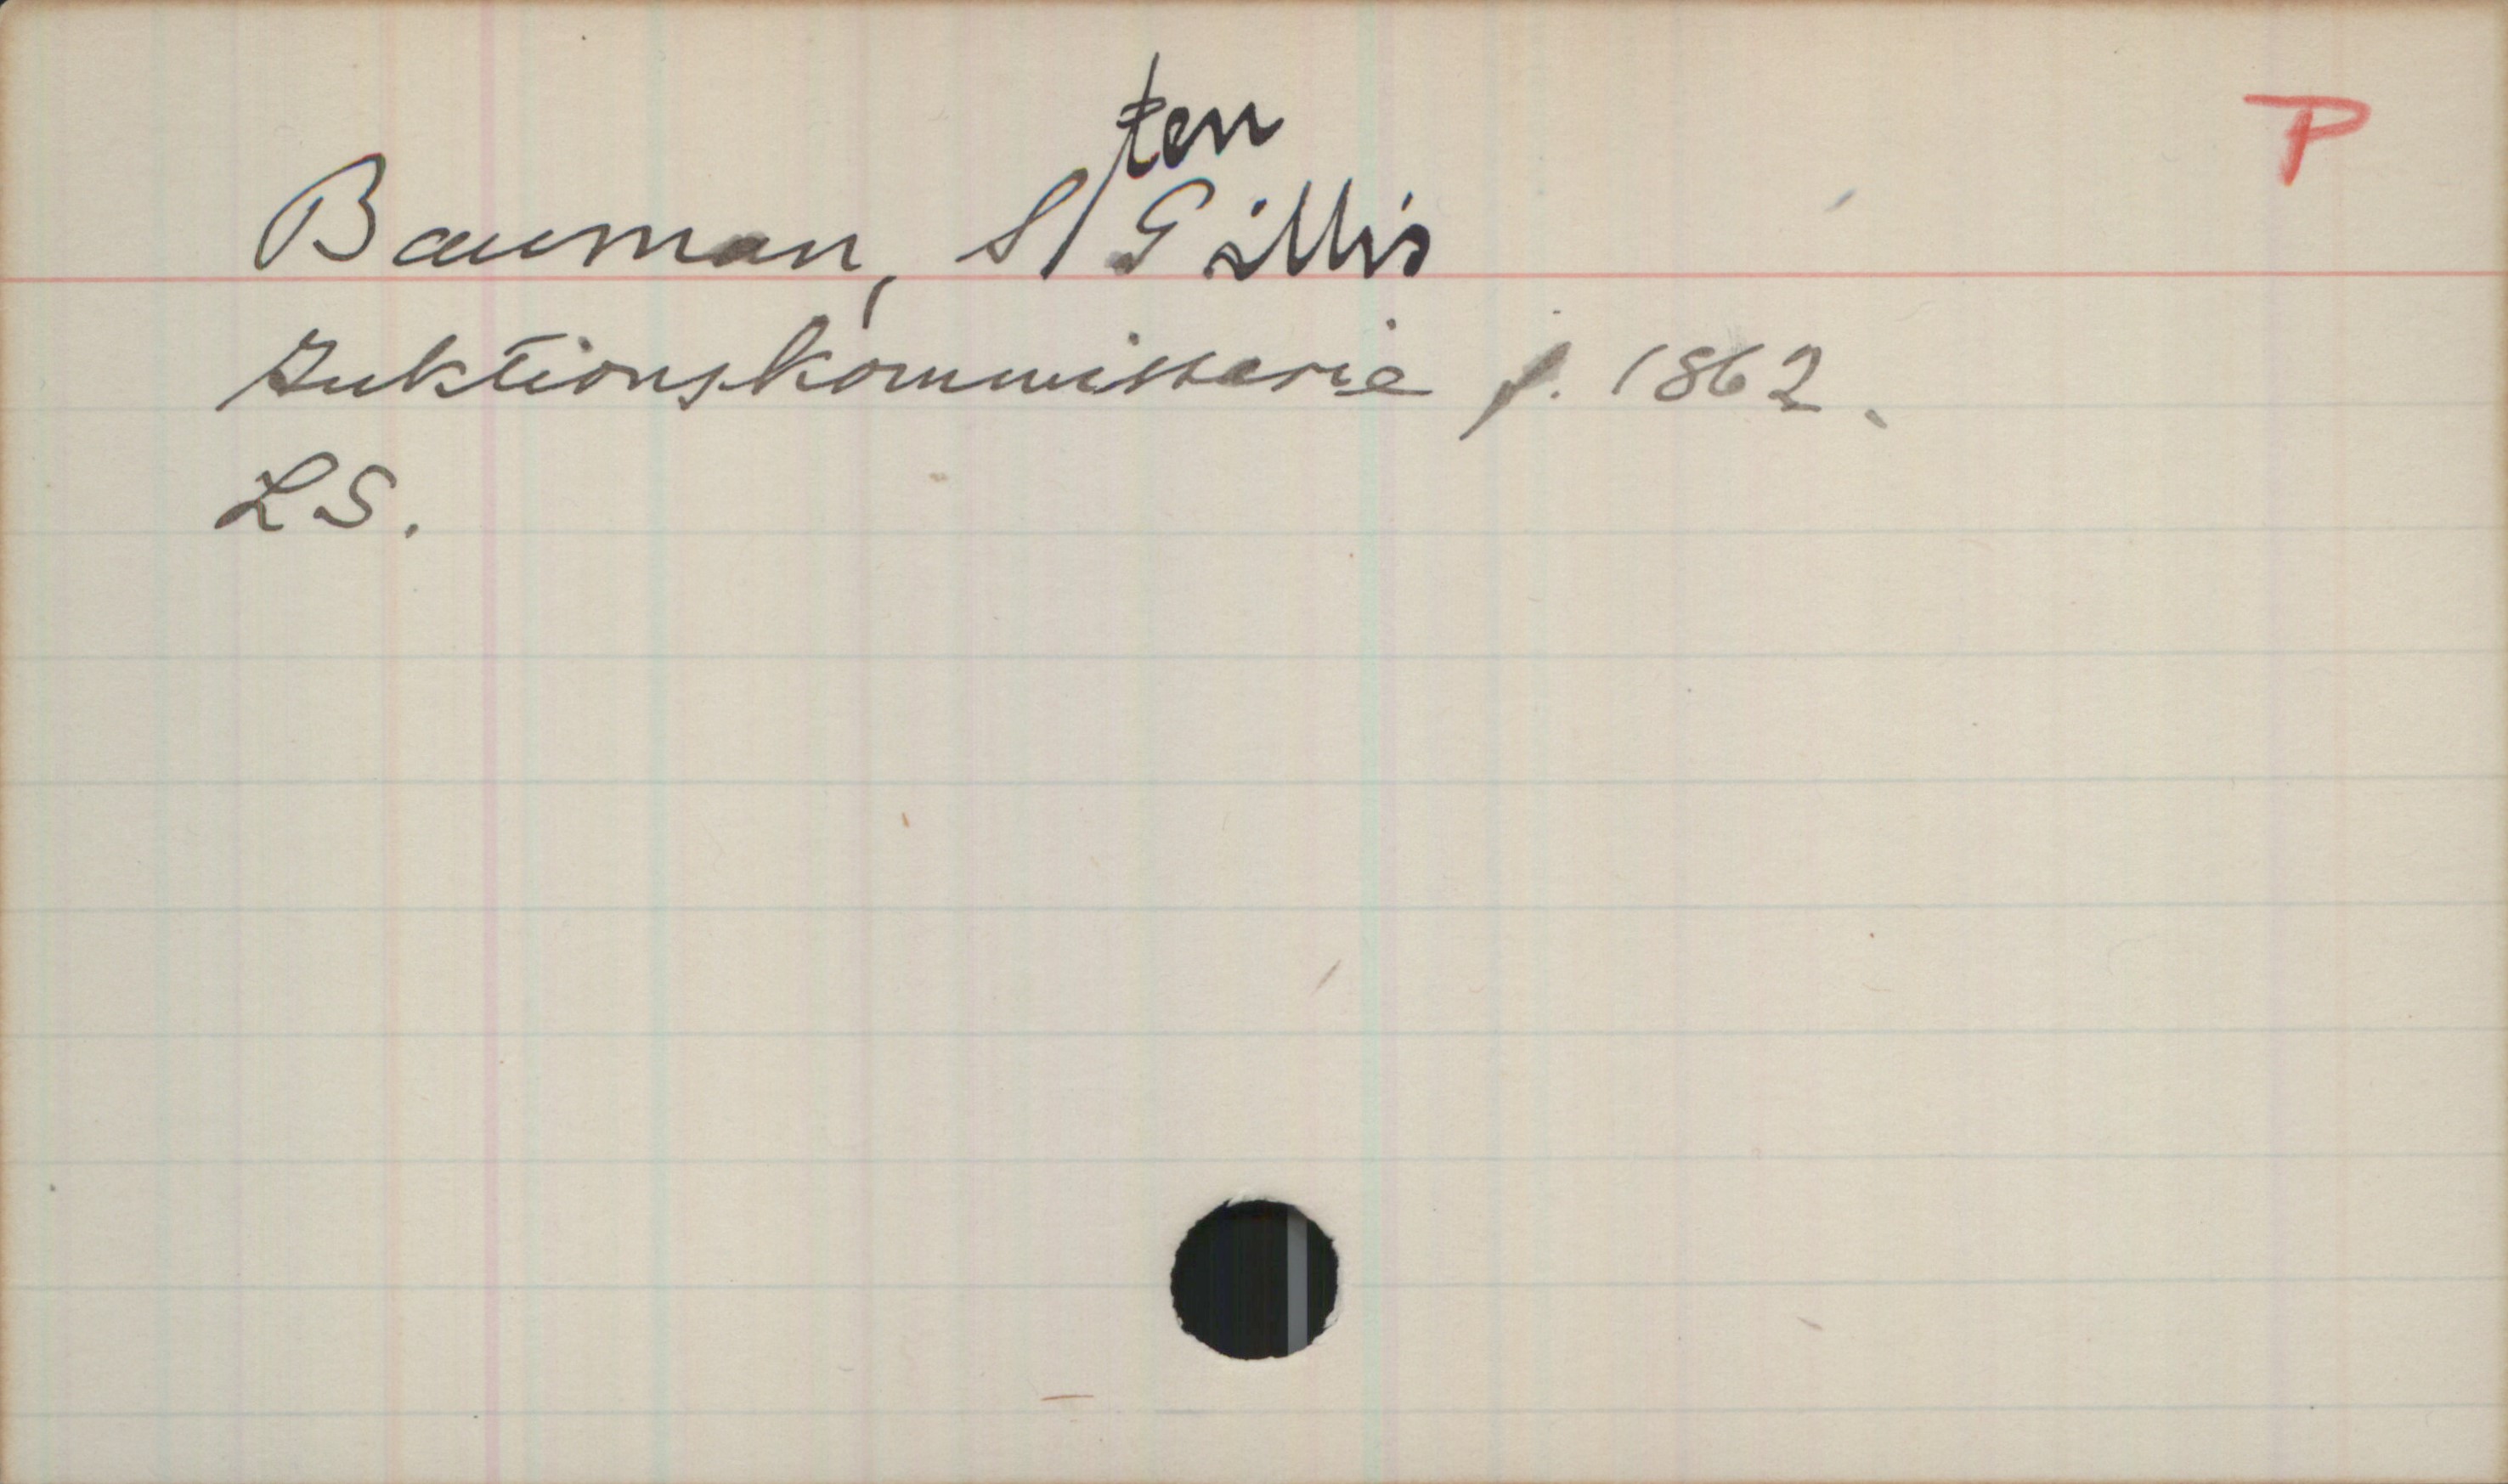 P
Bauman, Sten Gillis
Auktionskommissarie f. 1862.
LS.